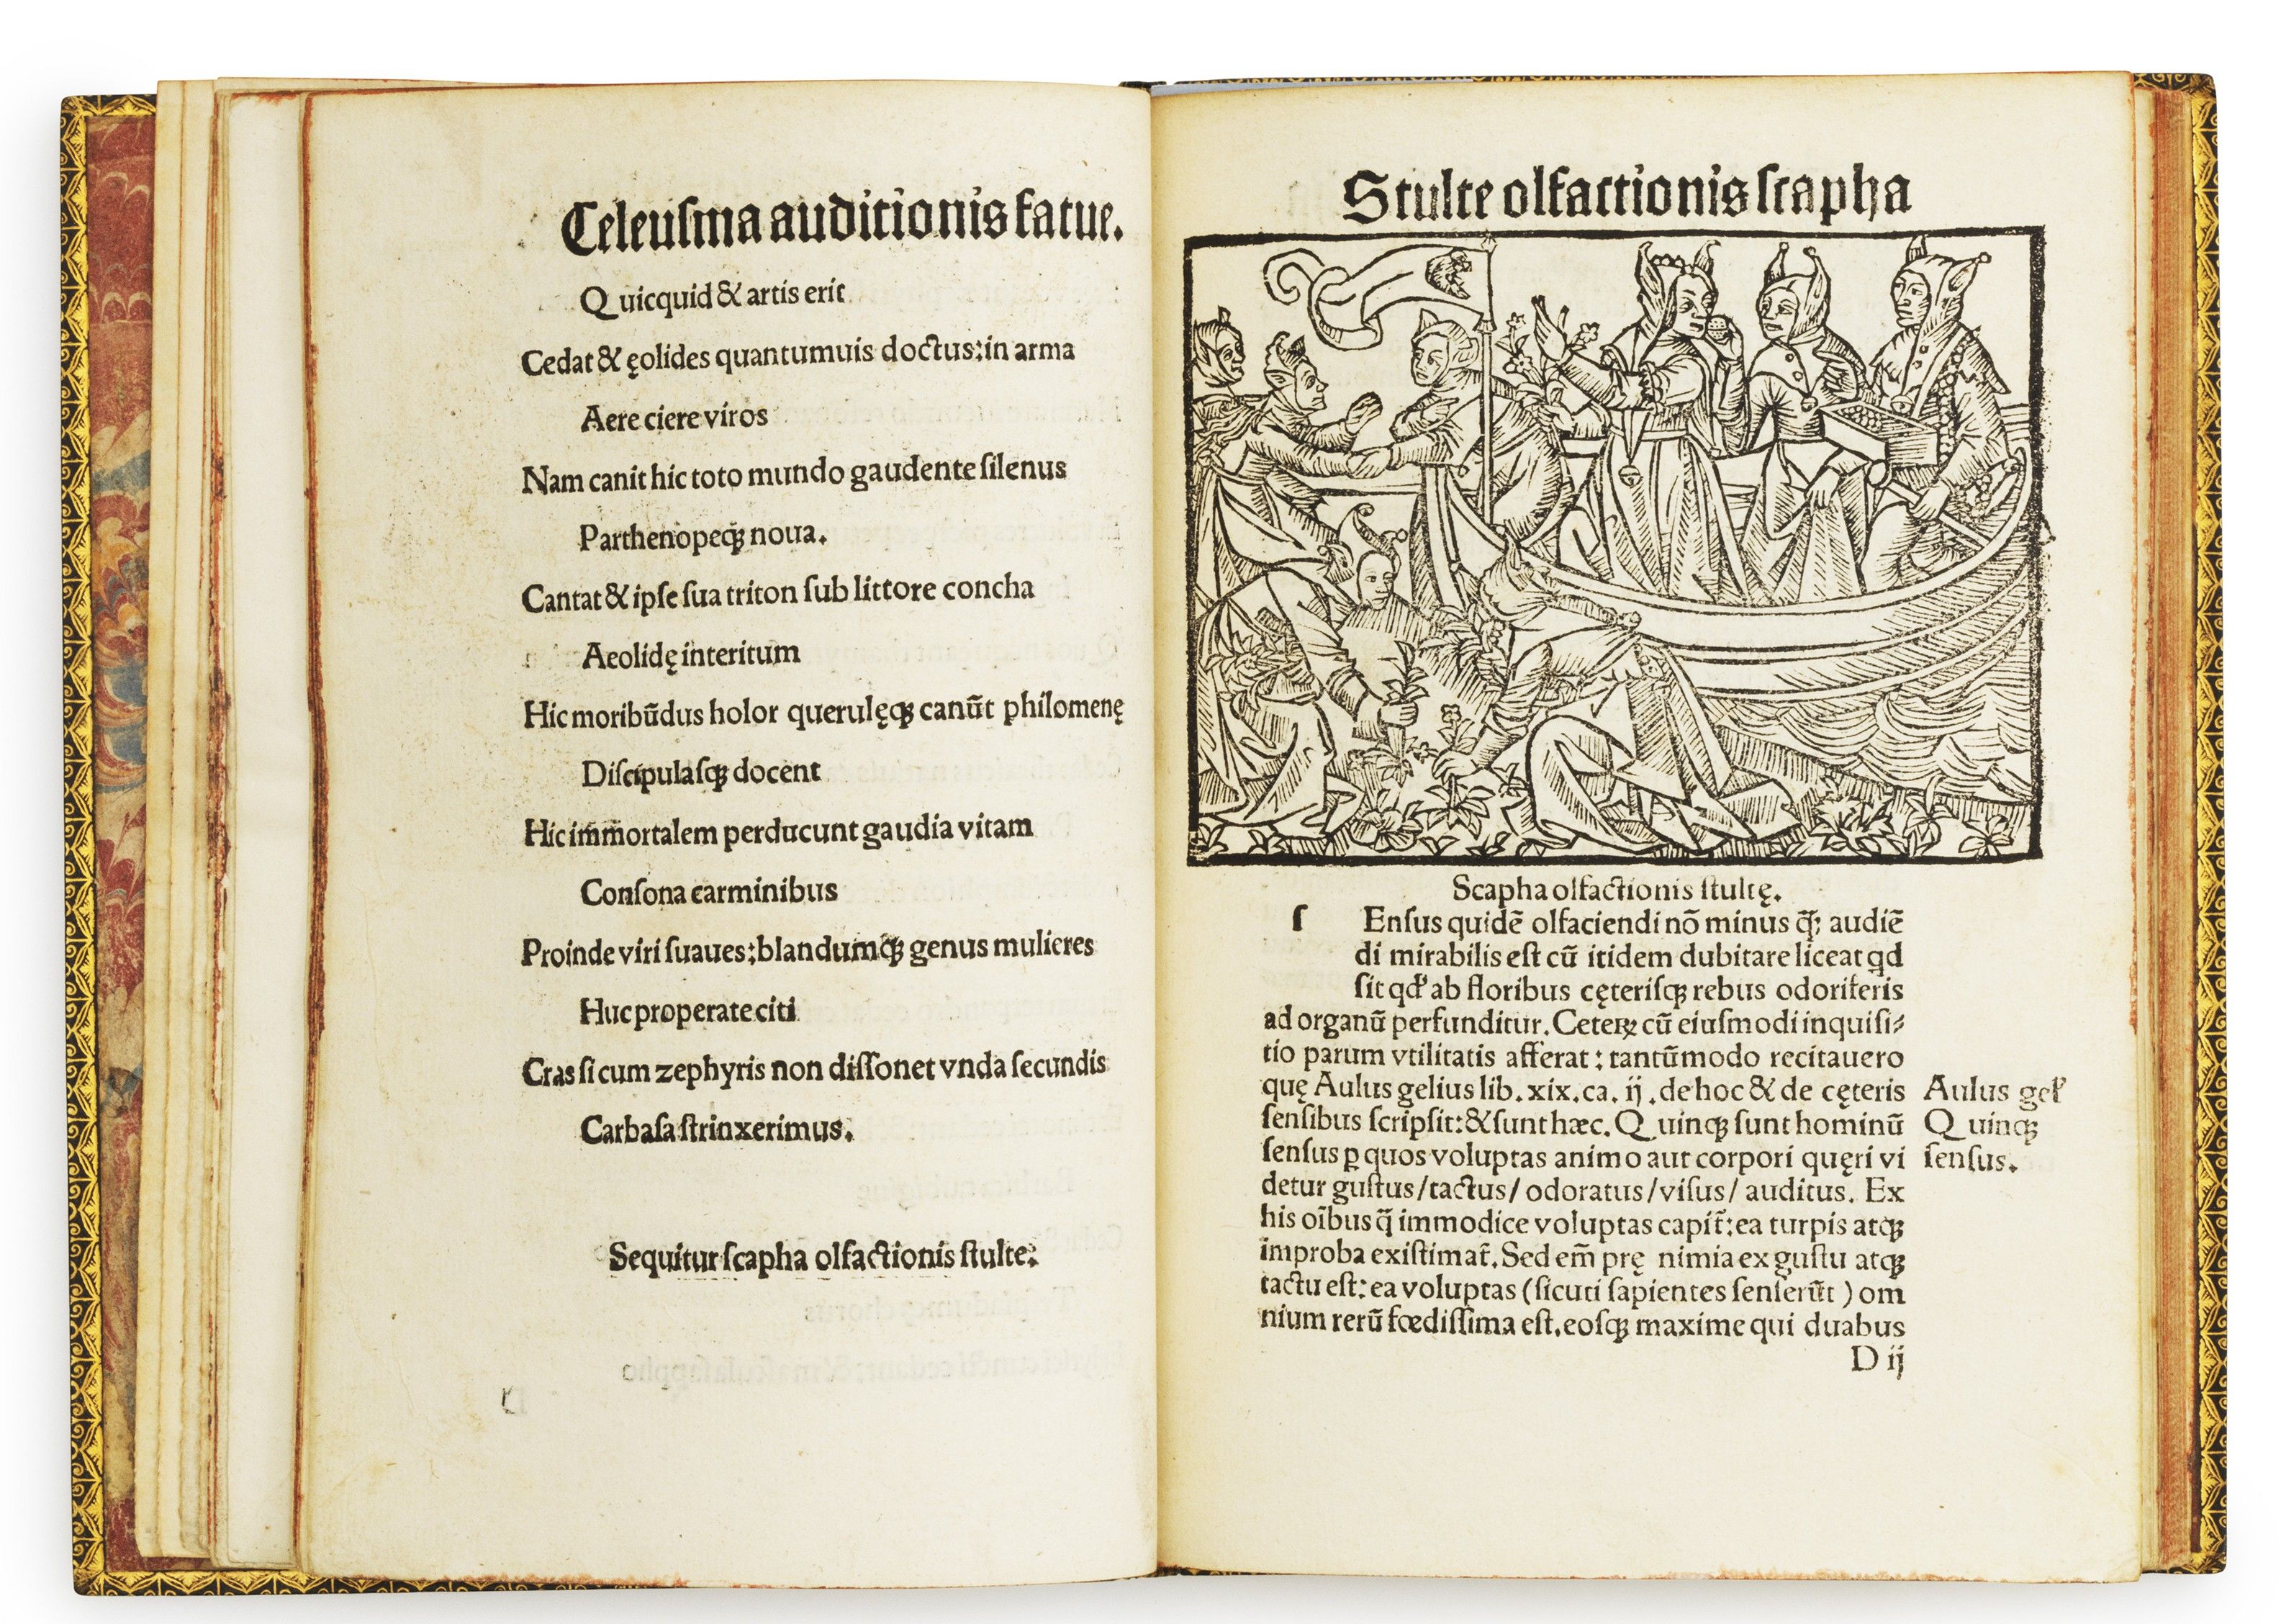 Celeuſma auditionis fatue.
Quicquid & artis erit
Cedat & ęolides quantumuis doctus: in arma
Aere ciere viros
Nam canit hic toto mundo gaudente ſilenus
Parthenopeqꝫ noua.
Cantat & ipſe ſua triton ſub littore concha
Aeolidę interitum
Hic moribūdus holor querulęqꝫ canūt philomenę
Diſcipulaſqꝫ docent
Hic immortalem perducunt gaudia vitam
Conſona carminibus
Proinde viri ſuaues: blandumqꝫ genus mulieres
Huc properate citi
Cras ſi cum zephyris non diſſonet vnda ſecundis
Carbaſa ſtrinxerimus.
Sequitur ſcapha olfactionis ſtulte:
Stulte olfactionis ſcapha
Scapha olfactionis ſtultę.
ſ Enſus quidē olfaciendi nō minus q̄ꝫ audiē
di mirabilis eſt cū itidem dubitare liceat qd
ſit qď ab floribus cęteriſqꝫ rebus odoriferis
ad organū perfunditur. Ceteꝝ cū eiuſmodi inquiſi⸗
tio parum vtilitatis afferat: tantūmodo recitauero
quę Aulus gelius lib. xix. ca. ij. de hoc & de cęteris
ſenſibus ſcripſit: & ſunt hæc. Quinqꝫ ſunt hominū
ſenſus ꝑ quos voluptas animo aut corpori quęri vi
detur guſtus/tactus/ odoratus/viſus/ auditus. Ex
his oībus q̄ immodice voluptas capit̄: ea turpis atqꝫ
improba exiſtimat̄. Sed em̄ prę nimia ex guſtu atqꝫ
tactu eſt: ea voluptas (ſicuti ſapientes ſenſerūt) om
nium rerū fœdiſſima eſt. eoſqꝫ maxime qui duabus
D ij
Aulus gel̓
Quinqꝫ
ſenſus.